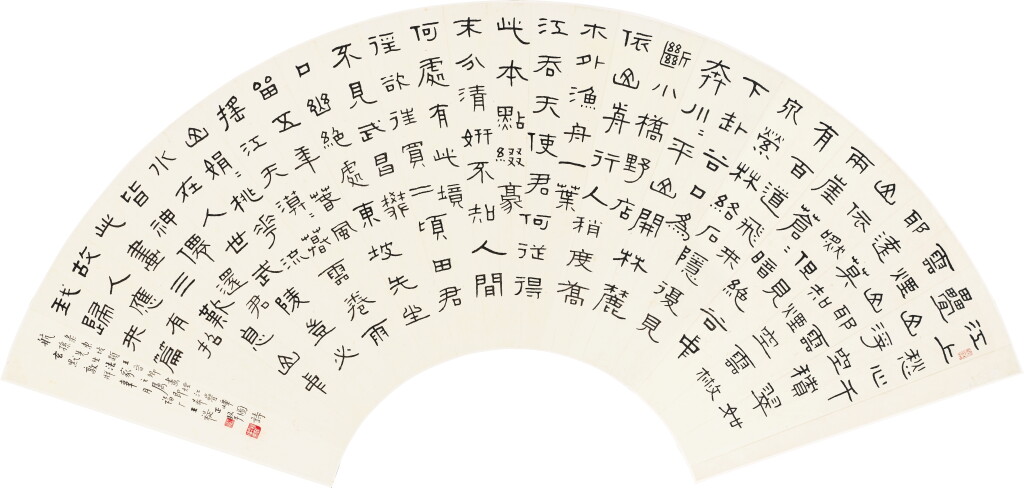 江上愁心千
疊山浮空積翠如
雲煙山耶雲
耶遠莫知煙空雲散
山依然但見
兩崖蒼〻暗絕谷中
有百道飛來
泉縈林絡石隱復見
下赴谷口為
奔川〻平山開林麓
斷小橋野店
依山前行人稍度喬
木外漁舟一葉
江吞天使君何從得
此本點綴豪
末分清妍不知人間
何處有此境
徑欲往買二頃田君
不見武昌樊
口幽絕處東坡先生
留五年春風
搖江天漠〻暮雲卷雨
山娟〻桃花流
水在人世武陵豈必
皆神僊還君
此畫三歎息山中
故人應有招
我歸來篇
東坡生題王晉卿畫煙江疊嶂圖詩
孫兄法家屬即正
玄黓敦牂辜月福厂王禔